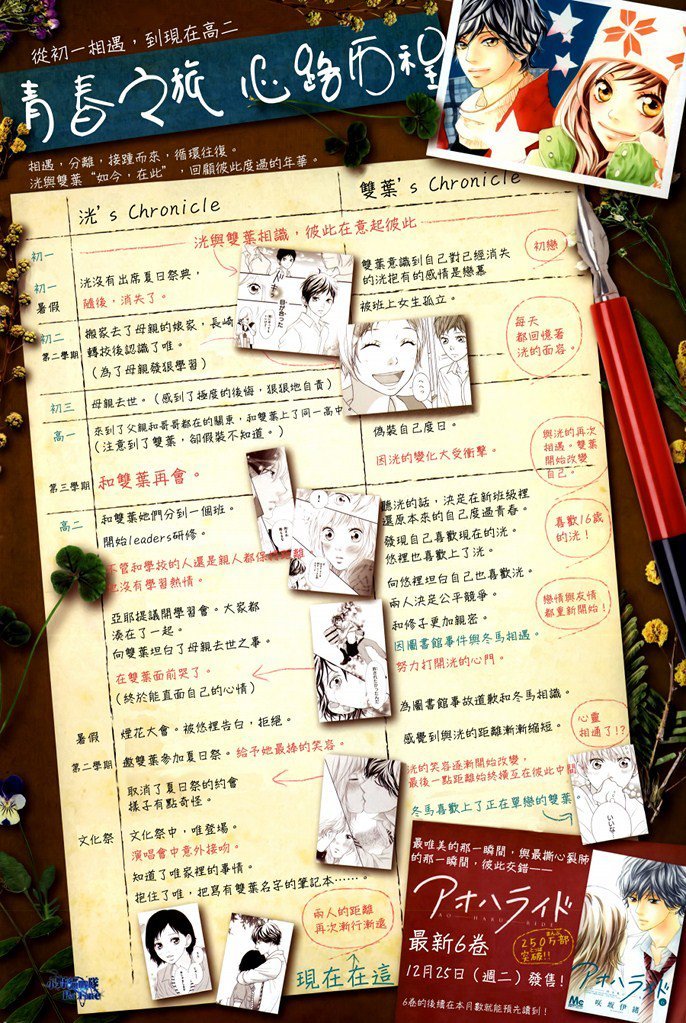 從初一相遇，到現在高二
青春之旅 心路历程
相遇，分離，接踵而來，循環往復。
洸與雙葉“如今，在此”，回顧彼此度過的年華。
洸's Chronicle
雙葉's Chronicle
初一
洸與雙葉相識，彼此在意起彼此
初一
暑假
洸沒有出席夏日祭典，
隨後，消失了。
雙葉意識到自己對已經消失
的洸抱有的感情是戀慕
初戀
初二
第二學期
搬家去了母親的娘家，長崎
轉校後認識了唯。
(為了母親發狠學習)
被班上女生孤立。
每天
都回憶着
洸的面容。
初三
母親去世。(感到了極度的後悔，狠狠地自責)
高一
來到了父親和哥哥都在的關東，和雙葉上了同一高中
(注意到了雙葉，卻假裝不知道。)
偽裝自己度日。
因洸的變化大受衝擊。
與洸的再次
相遇。雙葉
開始改變
自己。
第三學期
和雙葉再會。
高二
和雙葉她們分到一個班。
開始leaders研修。
不管和學校的人還是親人都保持距離
也沒有學習熱情。
聽洸的話，決定在新班級裡
還原本來的自己度過青春。
發現自己喜歡現在的洸。
悠裡也喜歡上了洸。
喜歡16歲
的洸！
向悠裡坦白自己也喜歡洸。
兩人決定公平競爭。
和修子更加親密。
因圖書館事件與冬馬相遇。
努力打開洸的心門。
戀情與友情
都重新開始！
亞耶提議開學習會。大家都
湊在了一起。
向雙葉坦白了母親去世之事。
在雙葉面前哭了。
(終於能直面自己的心情)
為圖書館事故道歉和冬馬相識。
感覺到與洸的距離漸漸縮短。
心靈
相通了!?
暑假
煙花大會。被悠裡告白，拒絕。
第二學期
邀雙葉參加夏日祭。給予她最捧的笑容。
取消了夏日祭的約會
樣子有點奇怪。
洸的笑容逐漸開始改變，
最後一點距離始終橫亙在彼此中間
冬馬喜歡上了正在單戀的雙葉。
いいな
文化祭
文化祭中，唯登場。
演唱會中意外接吻。
知道了唯家裡的事情。
抱住了唯，把寫有雙葉名字的筆記本……。
兩人的距離
再次漸行漸遠
現在在這
最唯美的那一瞬間，與最撕心裂肺
的那一瞬間，彼此交錯——
アオハライド
AO HARU RIDE
最新6卷
250万部
突破!!
12月25日（週二）發售！
6卷的後續在本月數就能預先讀到！
アオハライド
咲坂伊緒